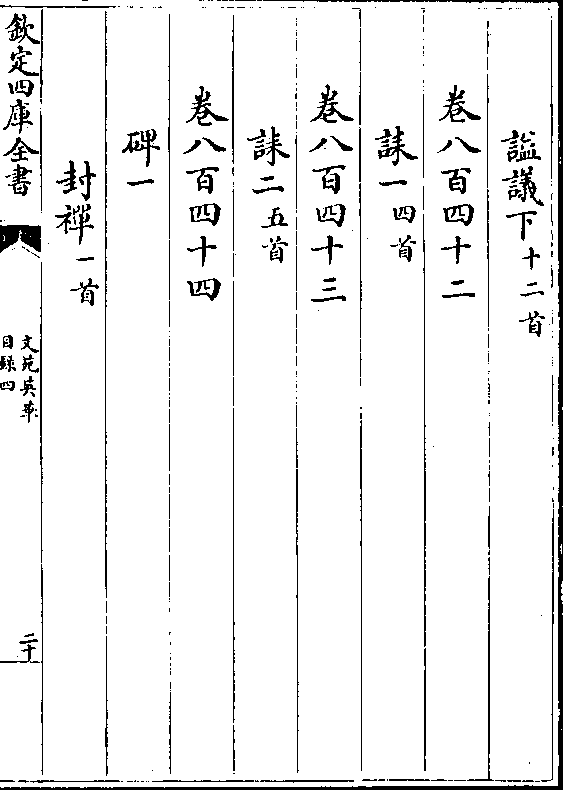 諡議下十二首
卷八百四十二
誄一四首
卷八百四十三
誄二五首
卷八百四十四
碑一
封禪一首
欽定四庫全書
文苑英華
目録四
二十